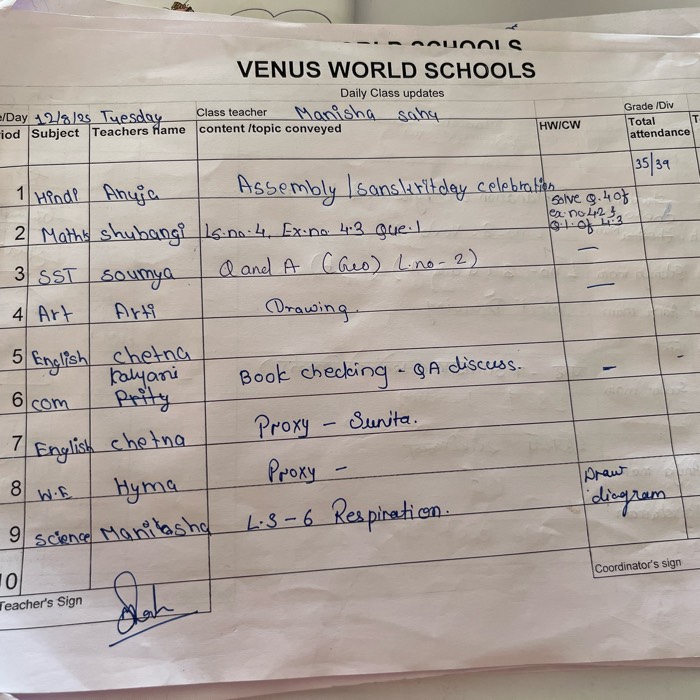 VENUS WORLD SCHOOLS
Daily Class updates
e/Day 12/8/25 Tuesday Class teacher Manisha sahu Grade /Div
iod Subject Teachers name content /topic conveyed HW/CW Total attendance T
35/39
1 Hindi Anuja Assembly / sanskrit day celebration
2 Maths shubangi Ls.no.4, Ex.no 4.3 Que.1 solve Q.4 of ex.no 4.2 & Q.1. of 4.3
3 SST soumya Q and A (Geo) L.no-2) —
4 Art Arti Drawing. —
5 English chetna
kalyani Book checking - QA discuss. -
6 com Prity
7 English chetna Proxy - Sunita.
8 W.E Hyma Proxy - Draw diagram
9 science Manitasha L.S-6 Respiration.
10
Teacher's Sign Coordinator's sign